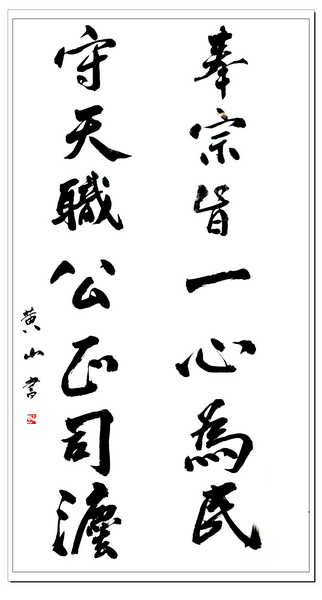 奉宗旨一心為民
守天職公正司灋
黄山書